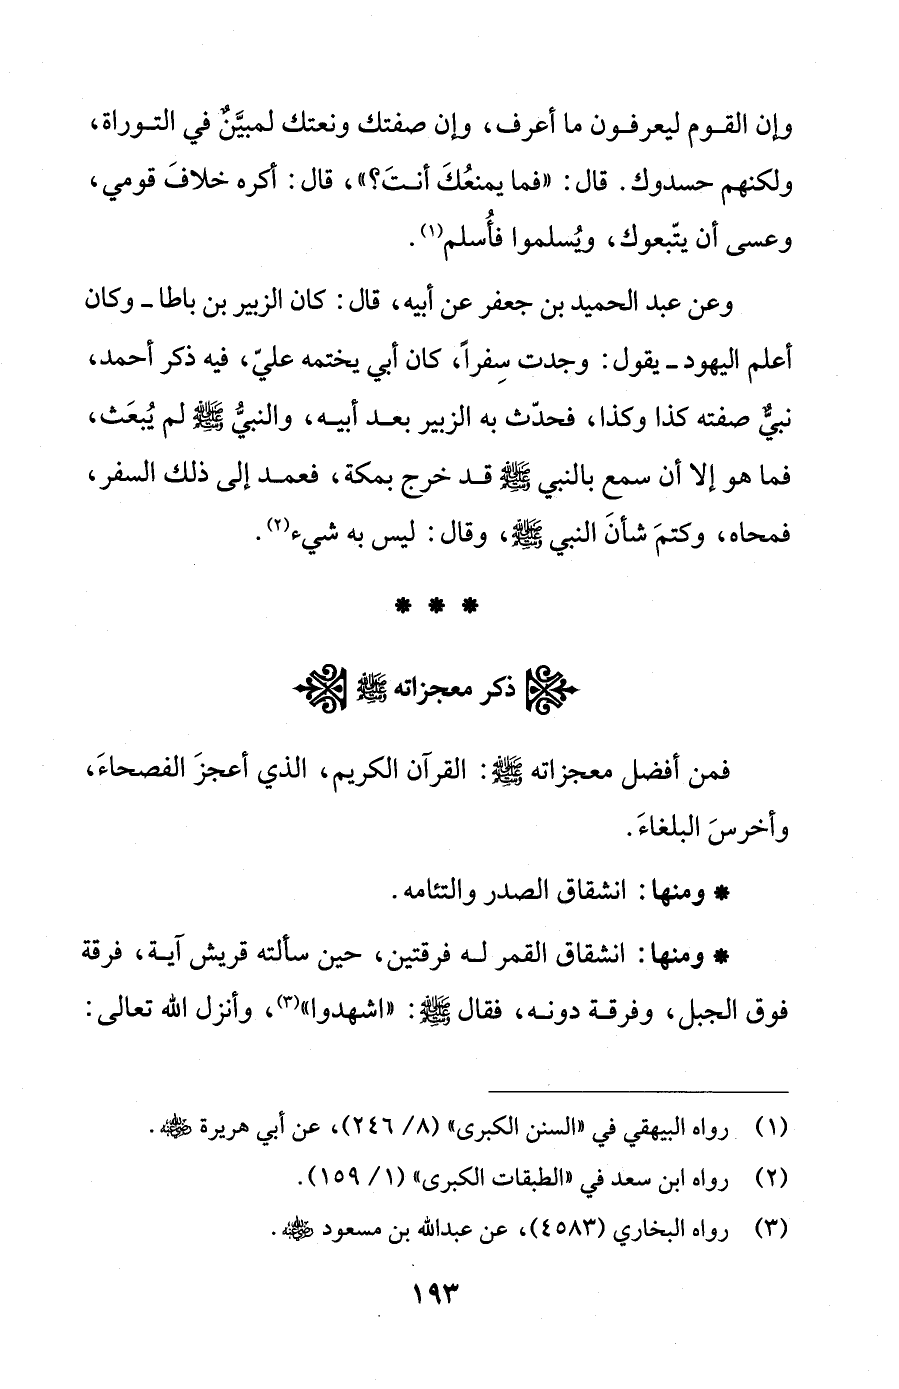 وإن القوم ليعرفون ما أعرف، وإن صفتك ونعتك لمبيَّنٌ في التوراة،
ولكنهم حسدوك. قال: «فما يمنعُكَ أنتَ؟»، قال: أكره خلافَ قومي،
وعسى أن يتّبعوك، ويُسلموا فأُسلم(١).
وعن عبد الحميد بن جعفر عن أبيه، قال: كان الزبير بن باطا ـ وكان
أعلم اليهود ـ يقول: وجدت سِفراً، كان أبي يختمه عليّ، فيه ذكر أحمد،
نبيٌّ صفته كذا وكذا، فحدّث به الزبير بعد أبيه، والنبيُّ ﷺ لم يُبعَث،
فما هو إلا أن سمع بالنبي ﷺ قد خرج بمكة، فعمد إلى ذلك السفر،
فمحاه، وكتمَ شأنَ النبي ﷺ، وقال: ليس به شيء(٢).
* * *
ذكر معجزاته ﷺ
فمن أفضل معجزاته ﷺ: القرآن الكريم، الذي أعجزَ الفصحاءَ،
وأخرسَ البلغاءَ.
* ومنها: انشقاق الصدر والتئامه.
* ومنها: انشقاق القمر له فرقتين، حين سألته قريش آية، فرقة
فوق الجبل، وفرقة دونه، فقال ﷺ: «اشهدوا»(٣)، وأنزل الله تعالى:
(١) رواه البيهقي في «السنن الكبرى» (٨/ ٢٤٦)، عن أبي هريرة رضي الله عنه.
(٢) رواه ابن سعد في «الطبقات الكبرى» (١/ ١٥٩).
(٣) رواه البخاري (٤٥٨٣)، عن عبدالله بن مسعود رضي الله عنه.
١٩٣